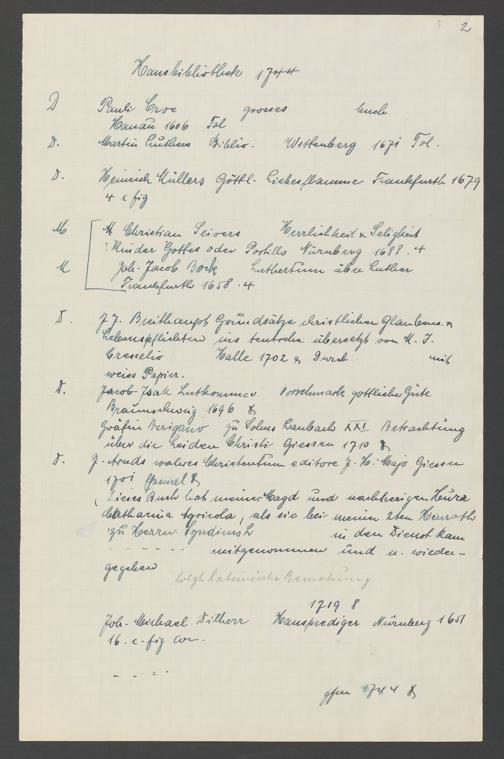 2
Hausbibliothek 1744
D Pauli Croc grosses buch
Hanau 1606 Fol
D. Martin Luthers Biblio. Wittenberg 1671 Fol.
D. Heinrich Müllers Göttl. Liebesflamme Frankfurth 1679
4 c fig
M M Christian Seivers Herrlichkeit & Seligkeit
? Kinder Gottes oder Postilla Nürnberg 1688. 4
M Joh. Jacob Bock Luthertum über Luther
Frankfurth 1658. 4
D. J. J. Breithaupt Grundsätze christlichen Glaubens &
Lebenspflichten ins übersetzt von M. J.
Halle 1702 & mit
weiss Papier.
D. Jacob Vorschmack göttlicher Güte
Braunschweig 1696 8
Gräfin zu Solms Laubach XXI Betrachtung
über die Leiden Christi Giessen 1710 8
D. J. Arnds wahres Christentum editore J. H. Majo Giessen
1701 8
(Dieses Buch hat meine Magd und nachherigen Hura
Catharina Agricola, als sie bei meiner 2ten Heurath
zu Herrn Syndicus L in den Dienst kam
- - - - - - mitgenommen und n. wieder-
gegeben
folgt lateinische Bemerkung
1719 8
Joh. Michael Dilherr Hausprediger Nürnberg 1651
16. c. fig cor.
- - - -
1744 8